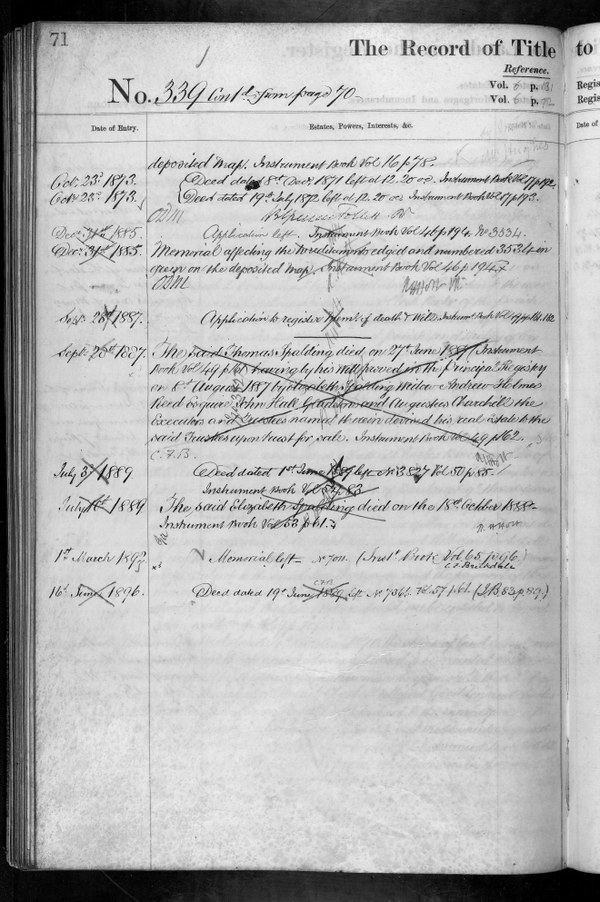 71
The Record of Title to
Reference.
No. 339 Cont'd from page 70 Vol. p. Regis
Vol. p. Regis
Date of Entry. Estates, Powers, Interests, &c. Date of
deposited Map. Instrument Book Vol 16 p 78.
Oct. 23d. 1873. Deed dated 8th Decr. 1871 left at 12.20 Instrument Book Vol 17 p 192.
Oct. 23d. 1873. Deed dated 19th July 1872 left at 12.20 Instrument Book Vol 17 p 193.
Decr. 31st 1885. Application left. Instrument Book Vol 46 p 194. No 3534.
Decr. 31st 1885. Memorial affecting the hereditaments edged and numbered 3534 in
green on the deposited Map. Instrument Book Vol 46 p 194.
Sept. 28th 1887. Application to register of death & Will. Instrument Book Vol 49 p 161.162
Sept. 28th 1887. The said Thomas Spalding died on 27th June 1887 (Instrument
Book Vol 49 p 161 having by his will proved in the principal Registry
on 6th August 1887 by Elizabeth Spalding Widow Andrew Holmes
Reed Esquire John Hall Gladstone and Augustus Churchill the
Executors and Trustees named therein devised his real estate to the
said Trustees upon trust for sale. Instrument Book Vol 49 p 162.
C.F.B.
July 3d 1889 Deed dated 1st June 1889 left No 3827 Vol 50 p 85.
Instrument Book Vol 53 p 83
July 10th 1889 The said Elizabeth Spalding died on the 18th October 1888
Instrument Book Vol 53 p 61.
1st March 1897 Memorial left No 7011 (Inst. Book Vol 65 p 96.)
C.F. Brickdale
16th June 1896. Deed dated 19th June 1889 left No 7366 Vol 57 p 61